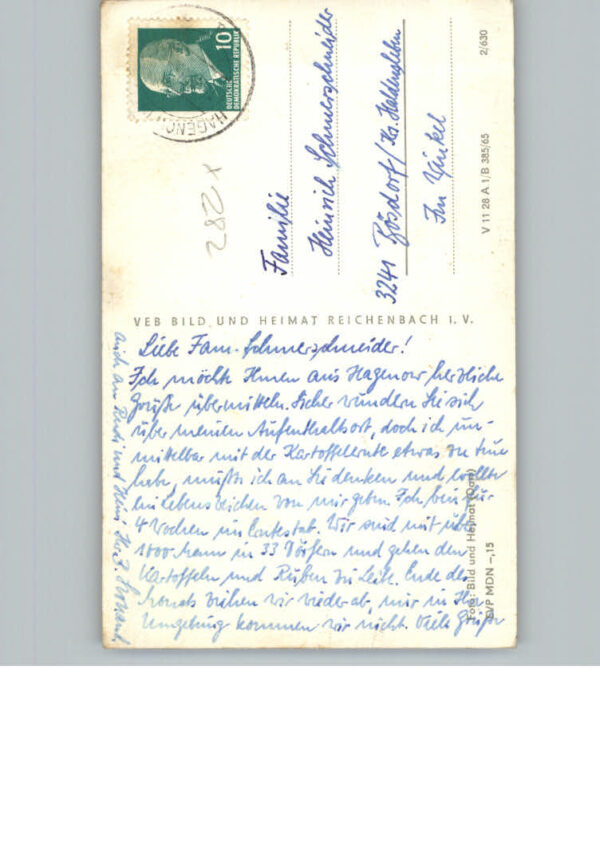 10
DEUTSCHE
DEMOKRATISCHE REPUBLIK
HAGENO
282 x
Familie
Heinrich Schmerschneider
3241 Bösdorf/Kr. Haldensleben
Im Winkel
2/630
V 11 28 A 1/B 385/65
VEB BILD UND HEIMAT REICHENBACH I. V.
Liebe Fam. Schmerschneider!
Ich möchte Ihnen aus Hagenow herzliche
Grüße übermitteln. Sicher wundern Sie sich
über meinen Aufenthaltsort, doch ich un-
mittelbar mit der Kartoffelernte etwas zu tun
habe, mußte ich an Sie denken und wollte
ein Lebenszeichen von mir geben. Ich bin für
4 Wochen im Erntestab. Wir sind mit über
1000 Mann in 33 Dörfern und gehen den
Kartoffeln und Rüben zu Leibe. Ende des
Monats ziehen wir wieder ab, nur in Ihre
Umgebung kommen wir nicht. Viele Grüße
auch an Rudi und Heini
Foto: Bild und Heimat
EVP MDN -,15